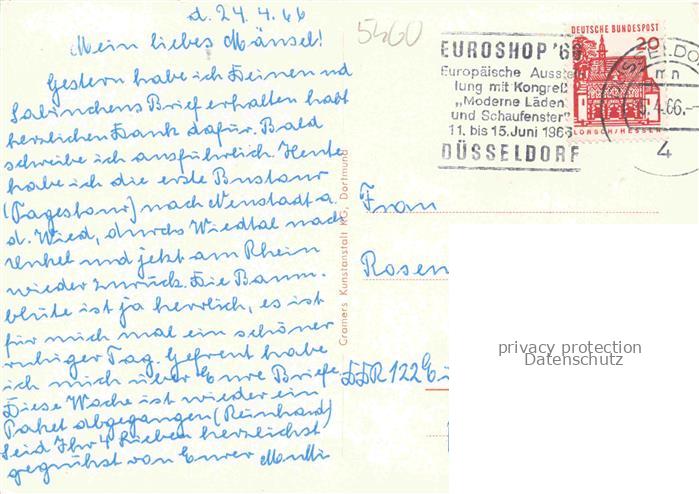 d. 24.4.66
Mein liebes Mänsel!
Gestern habe ich Deinen und
Sabinchens Brief erhalten habt
herzlichen Dank dafür. Bald
schreibe ich ausführlich. Heute
habe ich die erste Bustour
(Tagestour) nach Neustadt a.
d. Wied, durchs Wiedtal nach
und jetzt am Rhein
wieder zurück. Die Baum-
blüte ist ja herrlich, es ist
für mich mal ein schöner
ruhiger Tag. Gefreut habe
ich mich über Eure Briefe
Diese Woche ist wieder ein
Paket abgegangen (Reinhard)
Seid Ihr 4 Lieben herzlichst
gegrüßt von Eurer Mutti
5460
EUROSHOP '66
Europäische Ausstel
lung mit Kongreß
„Moderne Läden
und Schaufenster"
11. bis 15. Juni 1966
DÜSSELDORF
DEUTSCHE BUNDESPOST
20
LORSCH/HESSEN
SSELDO
mn
4.66.-
4
Cramers Kunstanstalt KG, Dortmund
Frau
Rosen
DDR 122
privacy protection
Datenschutz